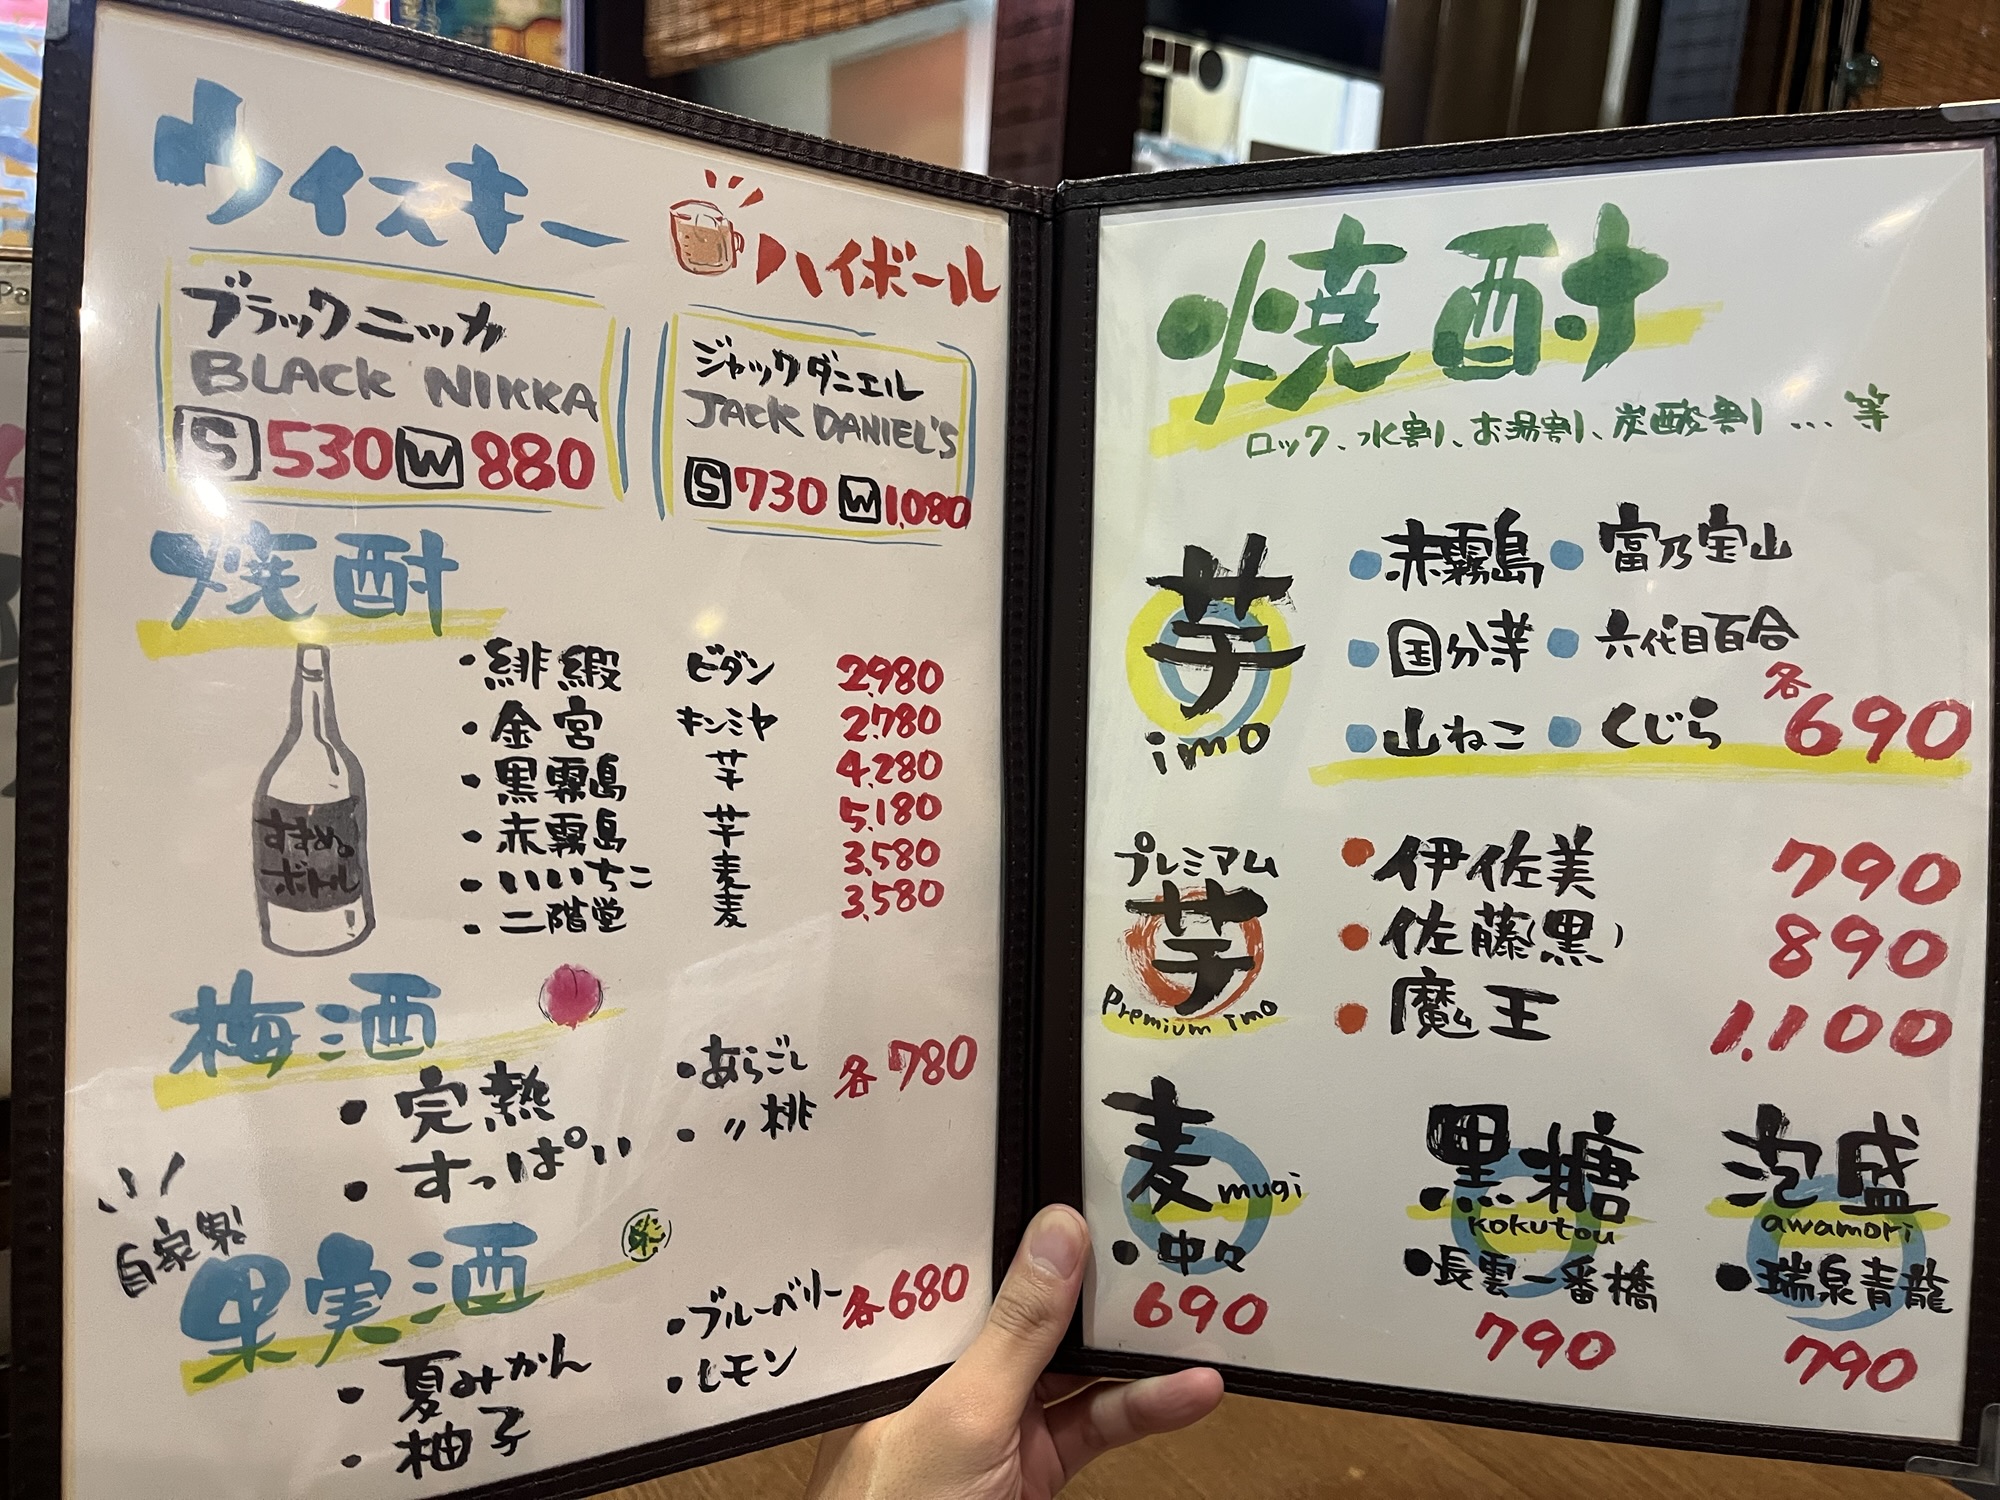 ウイスキー
ハイボール
ブラックニッカ
BLACK NIKKA
S 530 W 880
ジャックダニエル
JACK DANIEL'S
S 730 W 1,080
焼酎
すすめの
ボトル
・緋緞 ビダン 2,980
・金宮 キンミヤ 2,780
・黒霧島 芋 4,280
・赤霧島 芋 5,180
・いいちこ 麦 3,580
・二階堂 麦 3,580
梅酒
・完熟
・すっぱい
・あらごし
・〃桃
各780
自家製
果実酒
・夏みかん
・柚子
・ブルーベリー
・レモン
各680
焼酎
ロック、水割り、お湯割り、炭酸割り…等
芋
imo
・赤霧島 ・富乃宝山
・国分芋 ・六代目百合
・山ねこ ・くじら
各690
プレミアム
芋
Premium imo
・伊佐美 790
・佐藤(黒) 890
・魔王 1,100
麦
mugi
・中々
690
黒糖
kokutou
・長雲一番橋
790
泡盛
awamori
・瑞泉青龍
790